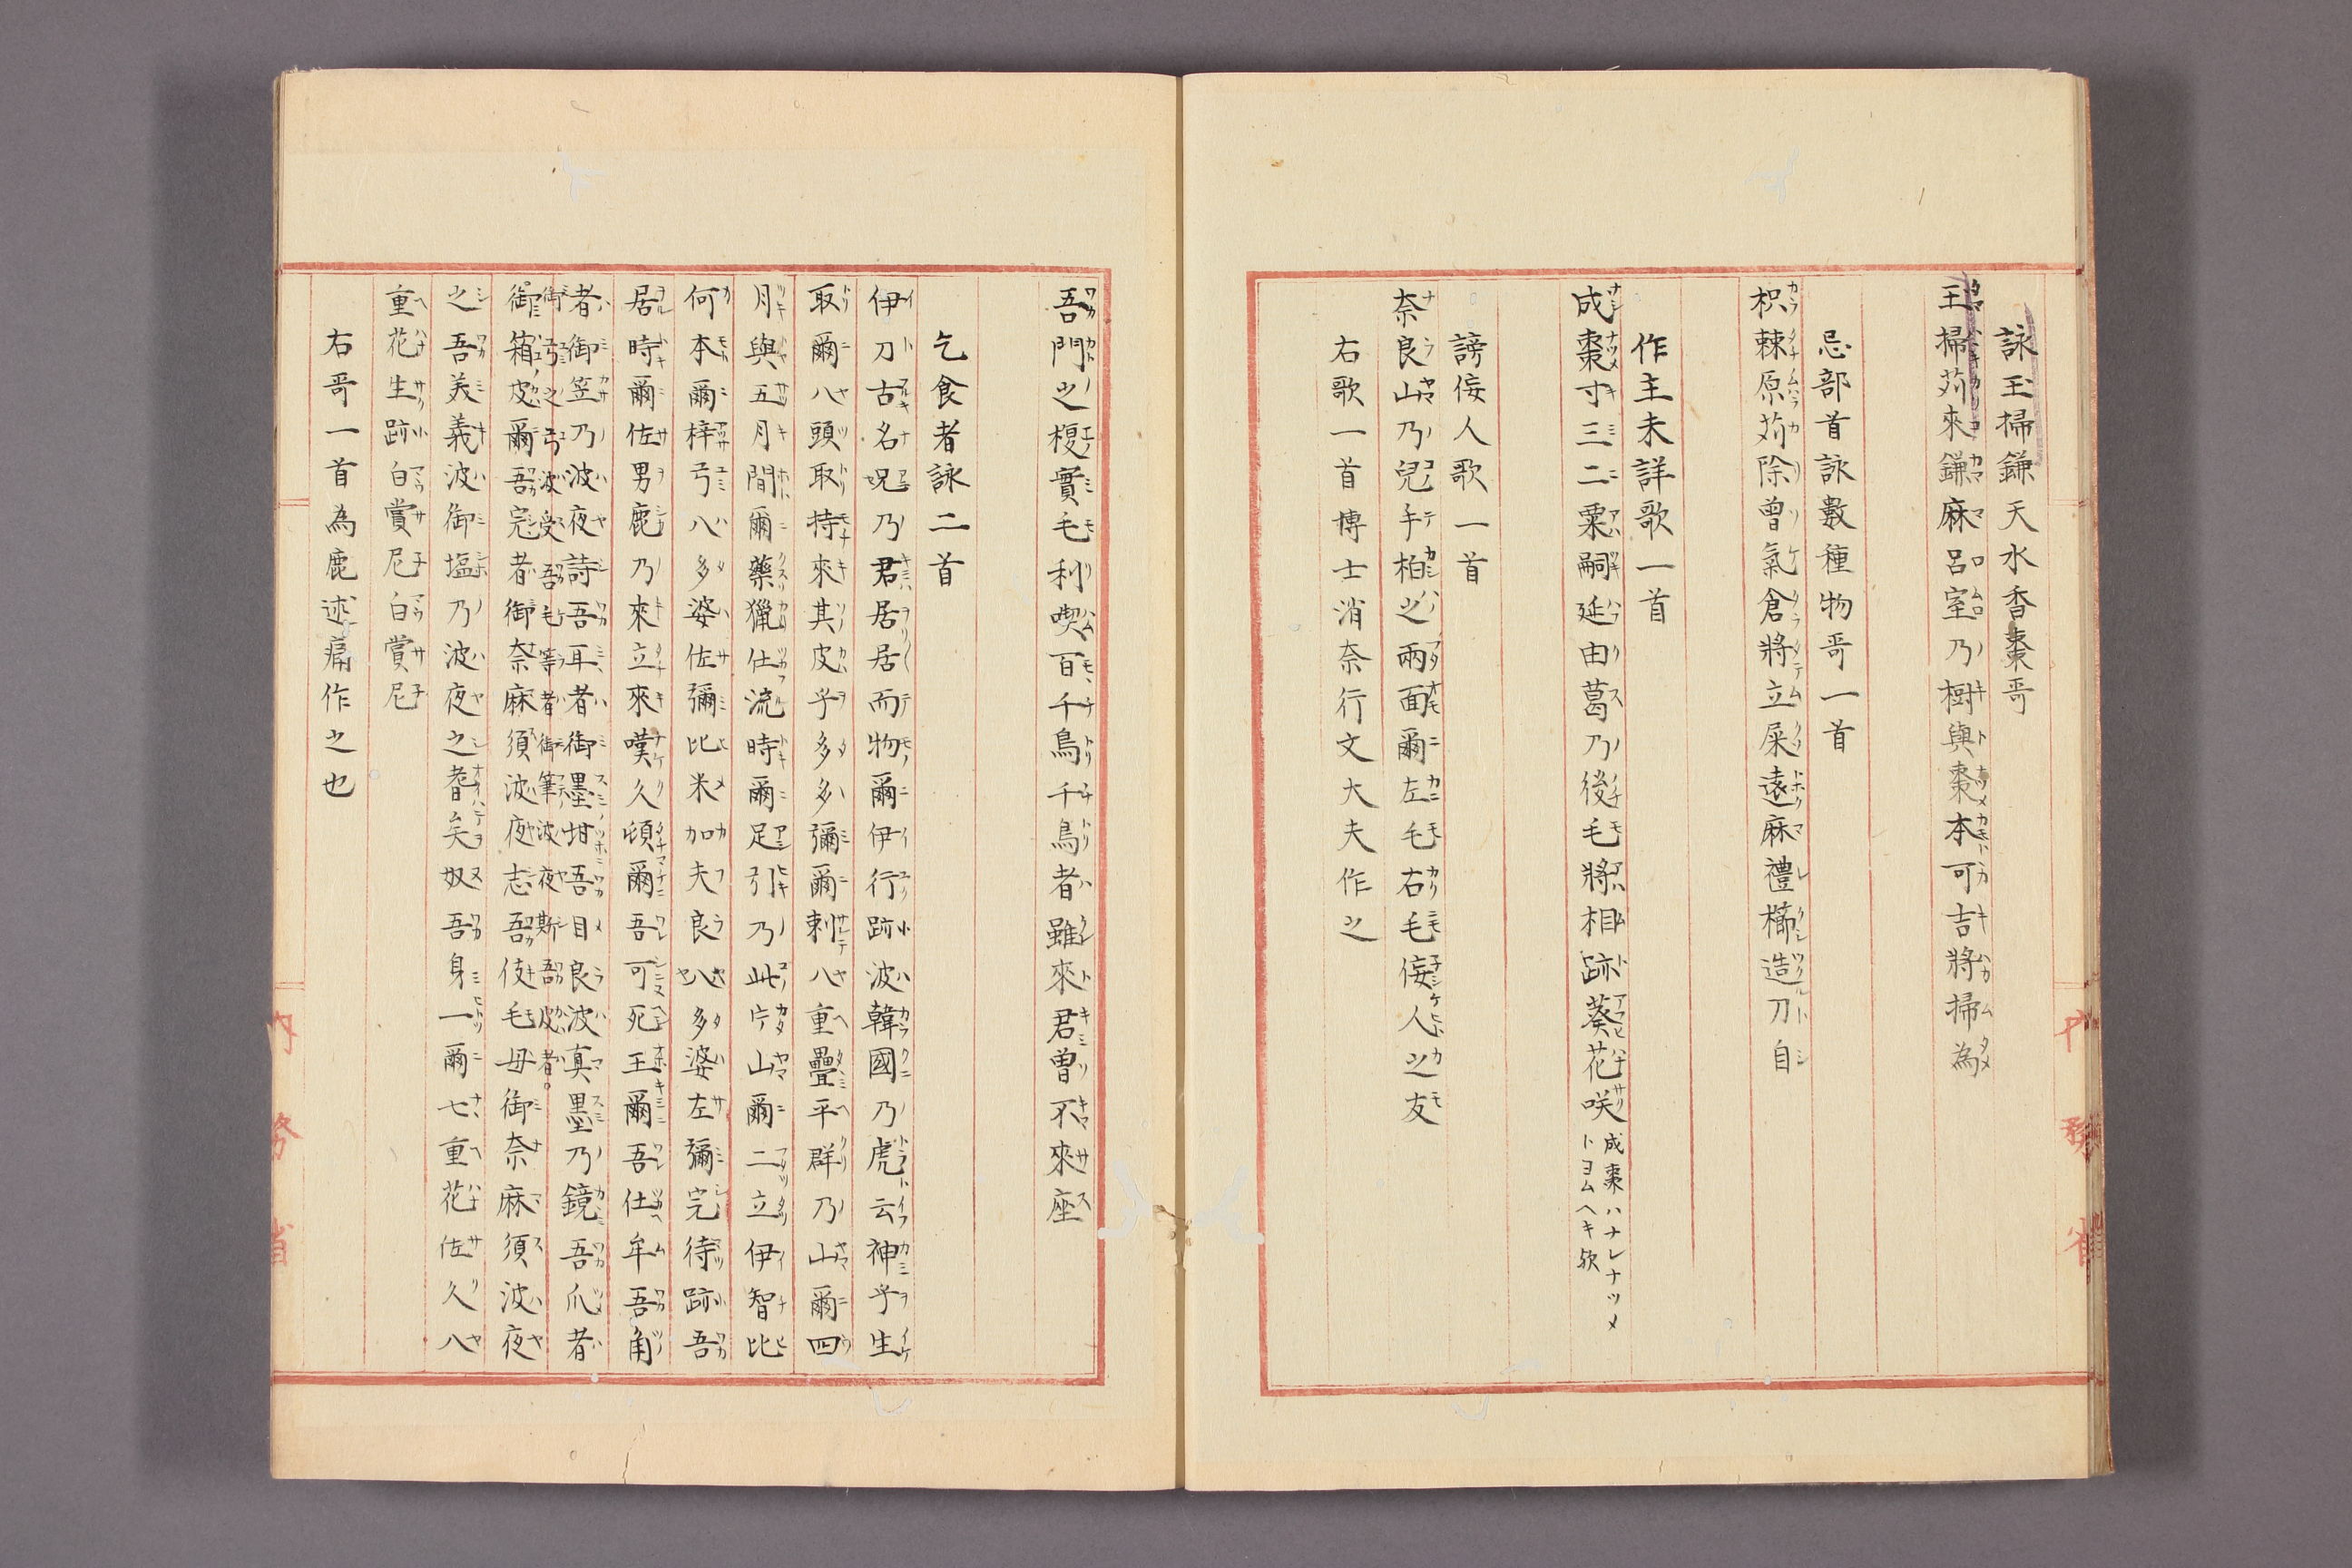 詠玉掃鎌天水香棗哥
玉掃苅來鎌麻呂室乃樹與棗本可吉將掃為
忌部首詠數種物哥一首
枳棘原苅除曾氣倉將立屎遠麻禮櫛造刀自
作主未詳歌一首
成棗寸三二粟嗣延田葛乃後毛將相跡葵花咲 成棗ハナレナツメ
トヨムヘキ欤
謗佞人歌一首
奈良山乃兒手柏之兩面爾左毛右毛佞人之友
右歌一首博士消奈行文大夫作之
吾門之榎實毛利喫百千鳥千鳥者雖來君曽不來座
乞食者詠二首
伊刀古名兄乃君居居而物爾伊行跡波韓國乃虎云神乎生
取爾八頭取持來其皮乎多多彌爾刺八重疊平群乃山爾四
月與五月間爾藥獵仕流時爾足引乃此片山爾二立伊智比
何本爾梓弓八多婆佐彌比米加夫良八多婆左彌完待跡吾
居時爾佐男鹿乃來立來嘆久頓爾吾可死王爾吾仕牟吾角
者御笠乃波夜詩吾耳者御墨坩吾目良波真墨乃鏡吾爪者
御弓之弓波受吾毛等者御筆波夜斯吾皮者
御箱皮爾吾完者御奈麻須波夜志吾伎毛母御奈麻須波夜
之吾美義波御塩乃波夜之耆矣奴吾身一爾七重花佐久八
重花生跡白賞尼白賞尼
右哥一首為鹿述痛作之也
内務省
内務省